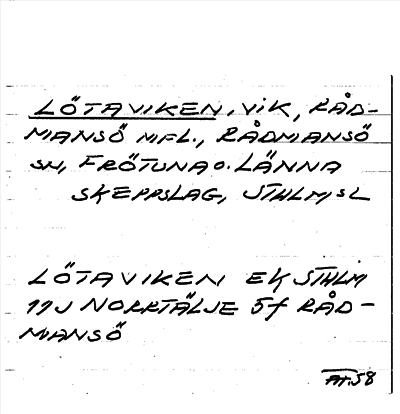 LÖTAVIKEN, VIK, RÅD-
MANSÖ MFL., RÅDMANSÖ
SN, FRÖTUNA O. LÄNNA
SKEPPSLAG, STHLMSL
LÖTAVIKEN EK STHLM
11J NORRTÄLJE 5f RÅD-
MANSÖ
AT. 58